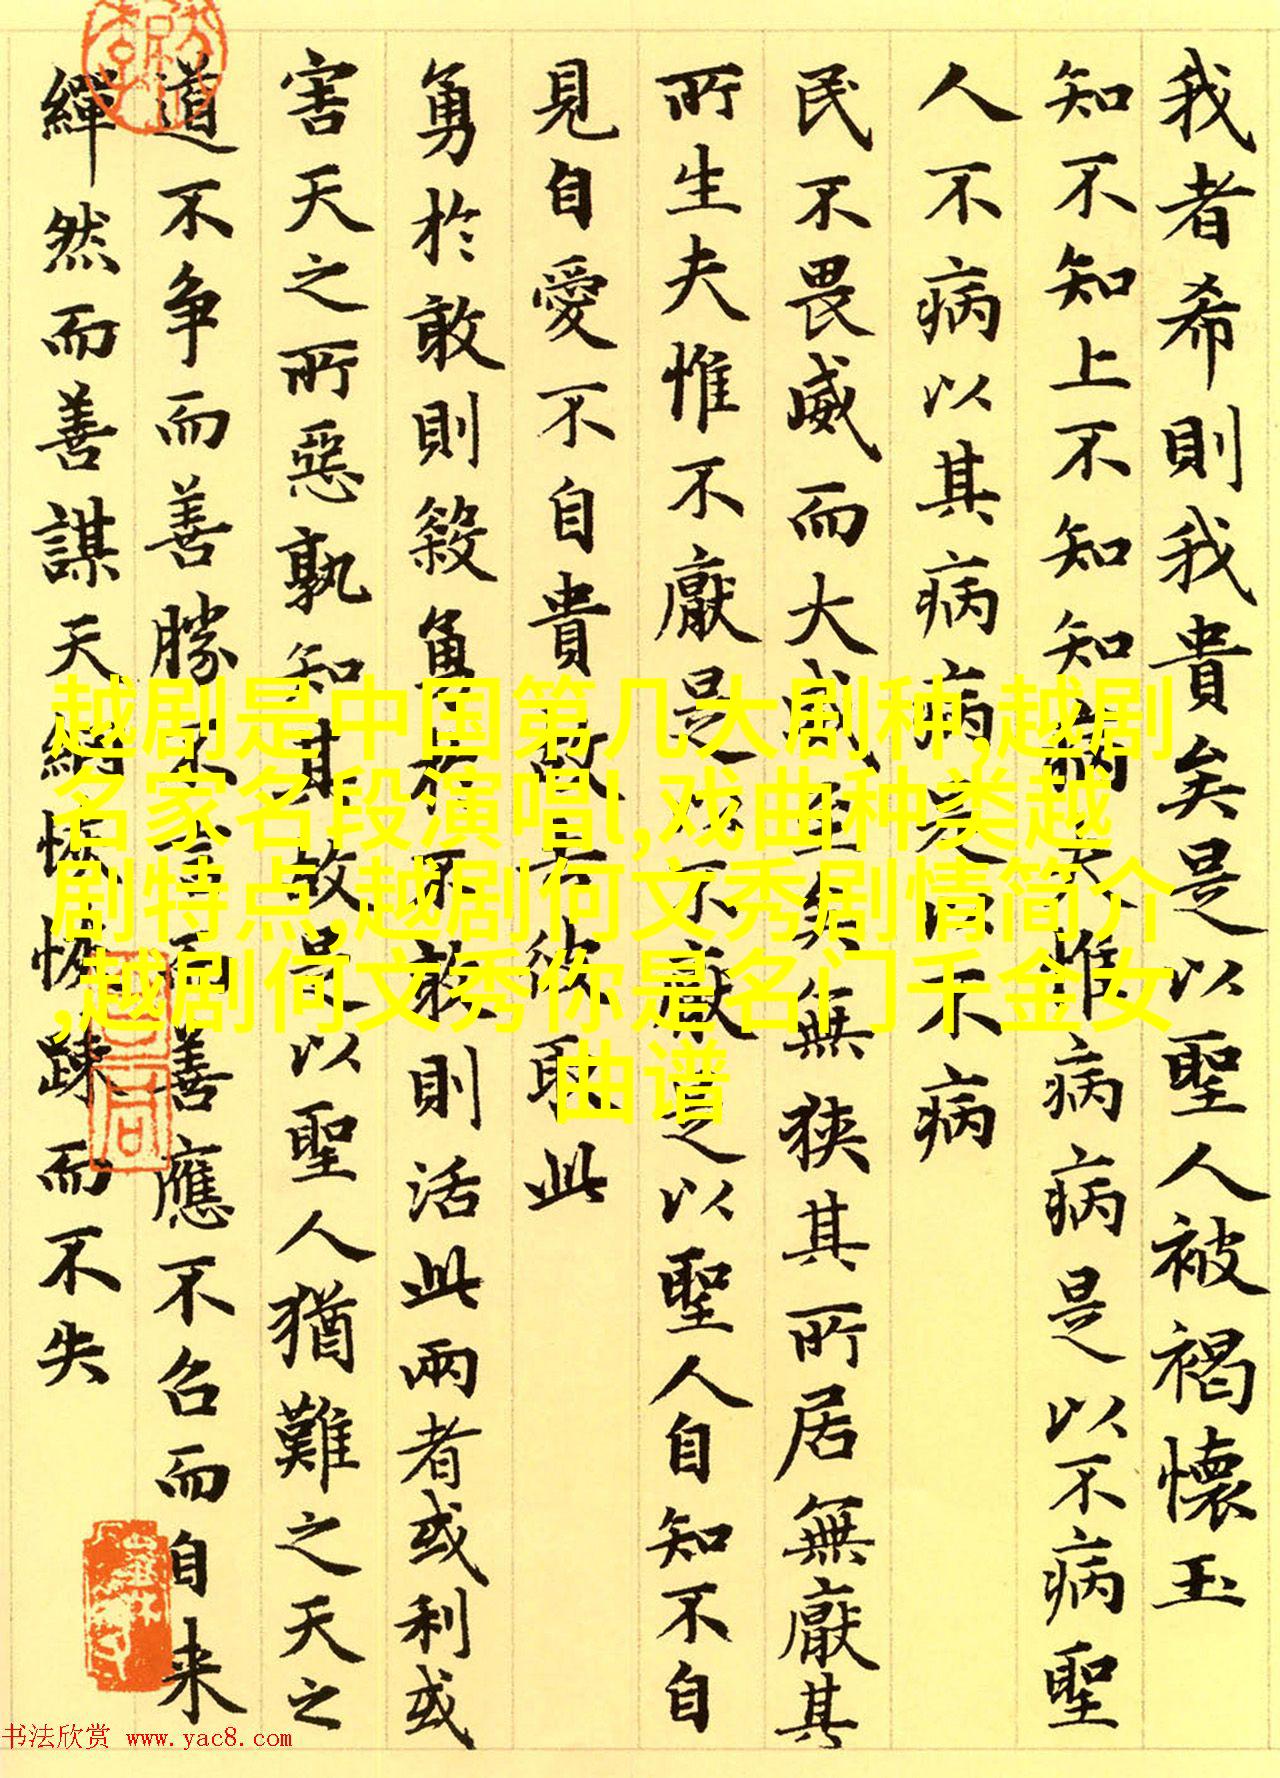 我者希則我貴矣是以聖人被褐懷玉
知不知上不知知病夫惟病病是以不病聖
人不病以其病病是以不病
民不畏威而大威至矣無狹其所居無厭其
所生夫惟不厭是以不厭是以聖人自知不自
見自愛不自貴故去彼取此
勇於敢則殺勇於不敢則活此兩者或利或
害天之所惡孰知其故是以聖人猶難之天之
道不争而善勝不言而善應不召而自来
繟然而善謀天網恢恢踈而不失
越剧是中国第几大剧种,越剧
名家名段演唱l,戏曲种类越
剧特点,越剧何文秀剧情简介
,越剧何文秀你是名门千金女
曲谱
书法欣赏 www.yac8.com